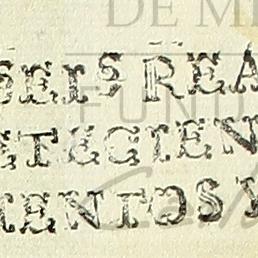 DE M
SEIS REA
FUND
ETECIEN
IENTOS Y